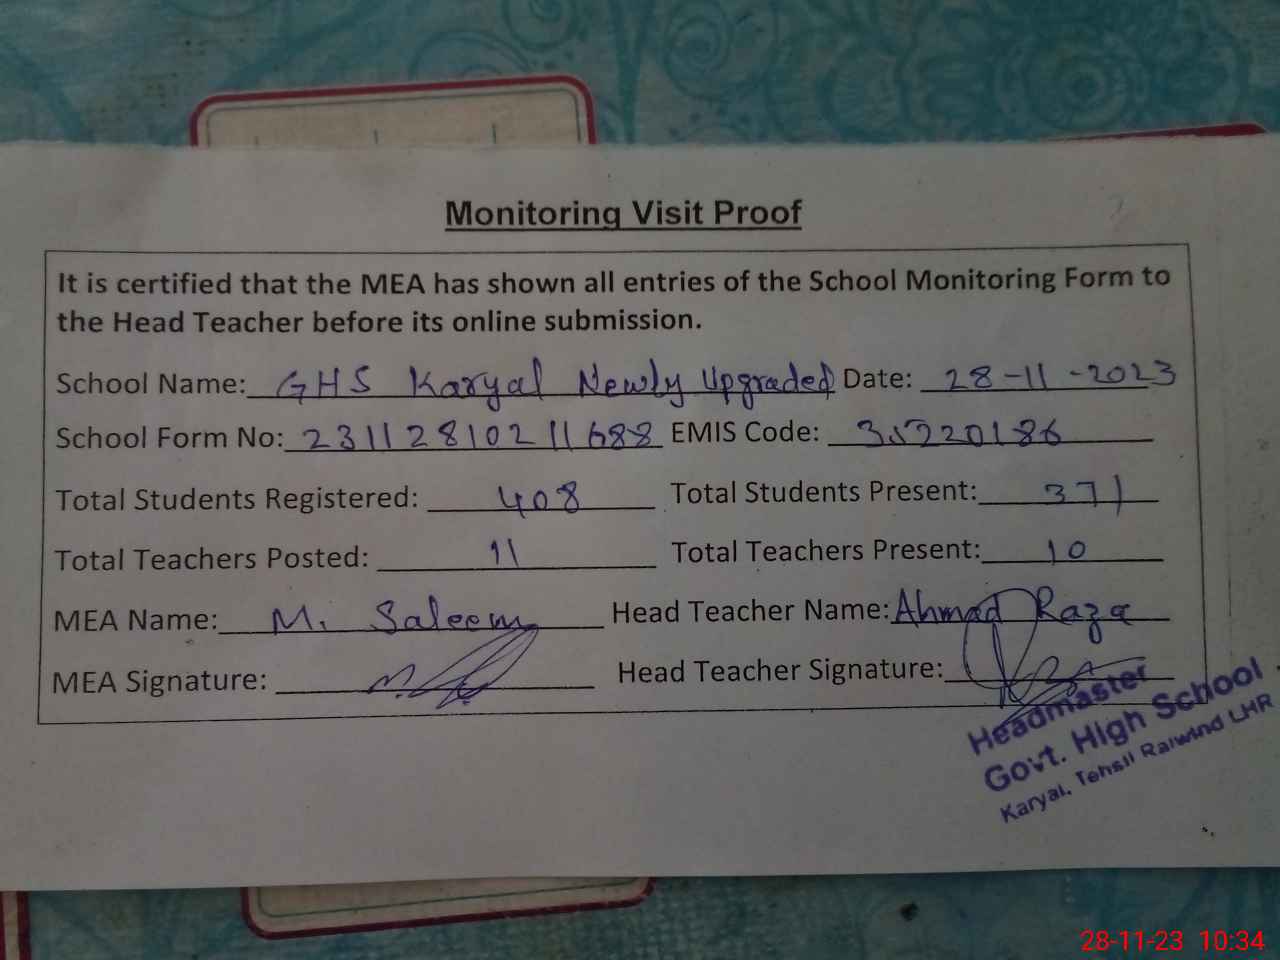 Monitoring Visit Proof
It is certified that the MEA has shown all entries of the School Monitoring Form to
the Head Teacher before its online submission.
School Name: GHS Karyal Newly Upgraded Date: 28-11-2023
School Form No: 23112810211688 EMIS Code: 35220186
Total Students Registered: 408 Total Students Present: 371
Total Teachers Posted: 11 Total Teachers Present: 10
MEA Name: M. Saleem Head Teacher Name: Ahmad Raza
MEA Signature: Head Teacher Signature:
Headmaster
Govt. High School
Karyal, Tehsil Raiwind LHR
28-11-23 10:34